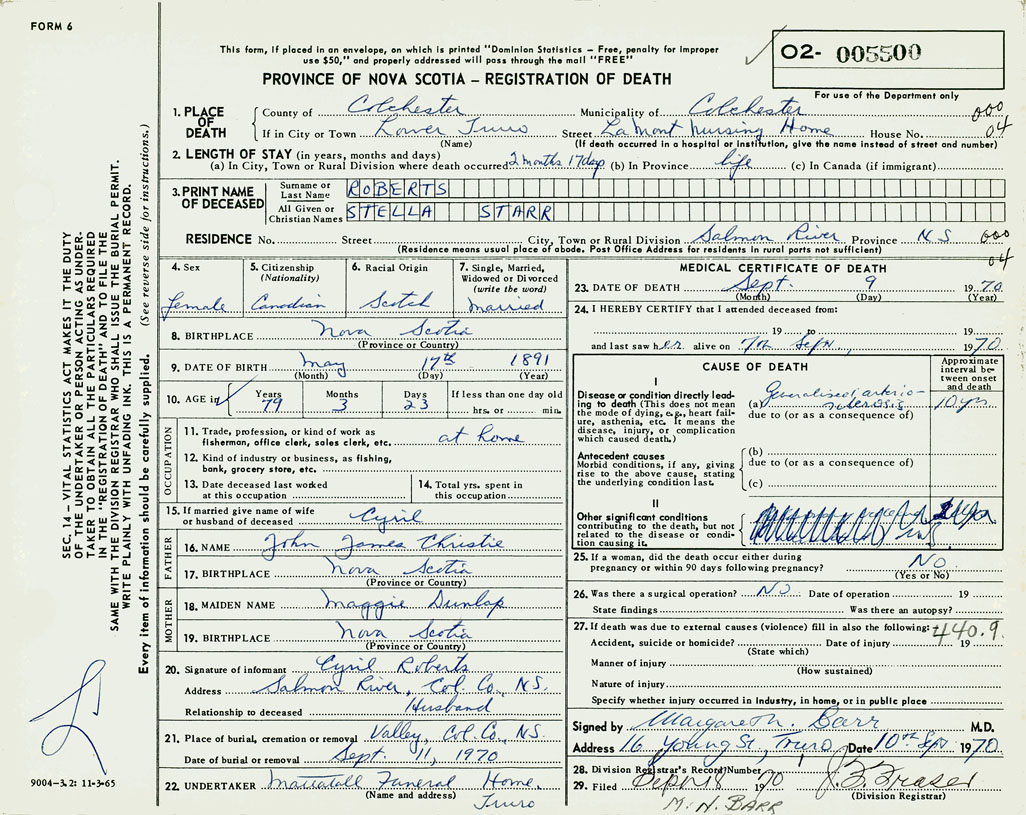 FORM 6
This form, if placed in an envelope, on which is printed "Dominion Statistics – Free, penalty for improper
use $50," and properly addressed will pass through the mail "FREE"
PROVINCE OF NOVA SCOTIA – REGISTRATION OF DEATH
O2- 005500
For use of the Department only
1. PLACE OF DEATH
County of Colchester Municipality of Colchester 000
If in City or Town Lower Truro Street LaMont Nursing Home House No. 04
(Name) (If death occurred in a hospital or institution, give the name instead of street and number)
2. LENGTH OF STAY (in years, months and days)
(a) In City, Town or Rural Division where death occurred 2 months 17 days (b) In Province life (c) In Canada (if immigrant)
3. PRINT NAME OF DECEASED
Surname or Last Name ROBERTS
All Given or Christian Names STELLA STARR
RESIDENCE No. Street City, Town or Rural Division Salmon River Province N.S. 000
(Residence means usual place of abode. Post Office Address for residents in rural parts not sufficient) 04
4. Sex
female
5. Citizenship
(Nationality)
Canadian
6. Racial Origin
Scotch
7. Single, Married,
Widowed or Divorced
(write the word)
Married
8. BIRTHPLACE Nova Scotia
(Province or Country)
9. DATE OF BIRTH May 17th 1891
(Month) (Day) (Year)
10. AGE in Years Months Days If less than one day old
79 3 23 hrs. or min.
OCCUPATION
11. Trade, profession, or kind of work as
fisherman, office clerk, sales clerk, etc. at home
12. Kind of industry or business, as fishing,
bank, grocery store, etc.
13. Date deceased last worked
at this occupation
14. Total yrs. spent in
this occupation
15. If married give name of wife
or husband of deceased Cyril
FATHER
16. NAME John James Christie
17. BIRTHPLACE Nova Scotia
(Province or Country)
MOTHER
18. MAIDEN NAME Maggie Dunlap
19. BIRTHPLACE Nova Scotia
(Province or Country)
20. Signature of informant Cyril Roberts
Address Salmon River, Col. Co., N.S.
Relationship to deceased Husband
21. Place of burial, cremation or removal Valley, Col. Co., N.S.
Date of burial or removal Sept. 11, 1970
22. UNDERTAKER Mattatall Funeral Home,
(Name and address) Truro
MEDICAL CERTIFICATE OF DEATH
23. DATE OF DEATH Sept. 9 1970
(Month) (Day) (Year)
24. I HEREBY CERTIFY that I attended deceased from:
19 to 19
and last saw her alive on 7th Sept, 1970
CAUSE OF DEATH
Approximate
interval be-
tween onset
and death
I
Disease or condition directly lead-
ing to death (This does not mean
the mode of dying, e.g., heart fail-
ure, asthenia, etc. It means the
disease, injury, or complication
which caused death.)
(a) Generalised arterio-
sclerosis 10 yrs
due to (or as a consequence of)
Antecedent causes
Morbid conditions, if any, giving
rise to the above cause, stating
the underlying condition last.
(b)
due to (or as a consequence of)
(c)
II
Other significant conditions
contributing to the death, but not
related to the disease or condi-
tion causing it.
25. If a woman, did the death occur either during
pregnancy or within 90 days following pregnancy? No
(Yes or No)
26. Was there a surgical operation? No Date of operation 19
State findings Was there an autopsy?
27. If death was due to external causes (violence) fill in also the following: 440.9
Accident, suicide or homicide? Date of injury 19
(State which)
Manner of injury
(How sustained)
Nature of injury
Specify whether injury occurred in Industry, in home, or in public place
Signed by Margaret N. Barr M.D.
Address 16 Young St, Truro Date 10th Sept 1970
28. Division Registrar's Record Number
29. Filed Sept 18 1970 Fraser
(Division Registrar)
M. N. BARR
SEC. 14 – VITAL STATISTICS ACT MAKES IT THE DUTY
OF THE UNDERTAKER OR PERSON ACTING AS UNDER-
TAKER TO OBTAIN ALL THE PARTICULARS REQUIRED
IN THE "REGISTRATION OF DEATH" AND TO FILE THE
SAME WITH THE DIVISION REGISTRAR WHO SHALL ISSUE THE BURIAL PERMIT.
WRITE PLAINLY WITH UNFADING INK. THIS IS A PERMANENT RECORD.
Every item of information should be carefully supplied. (See reverse side for instructions.)
9004–3.2: 11-3-65